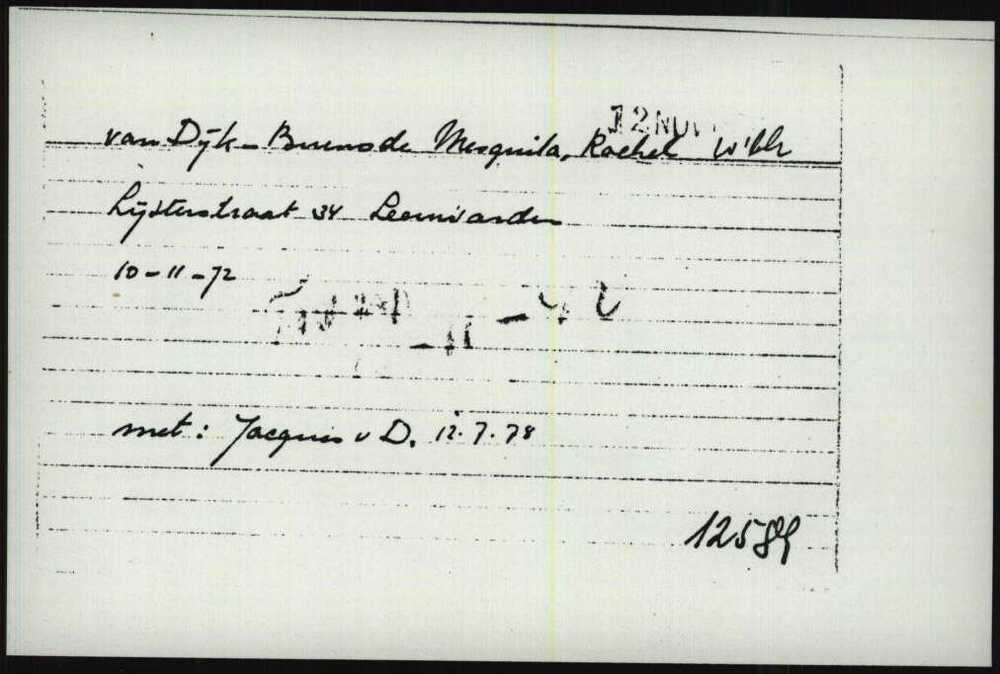 12 NOV
van Dijk - Bueno de Mesquita, Rachel
Lijsterstraat 34 Leeuwarden
10-11-72
met: Jacques v D. 12.7.78
12589